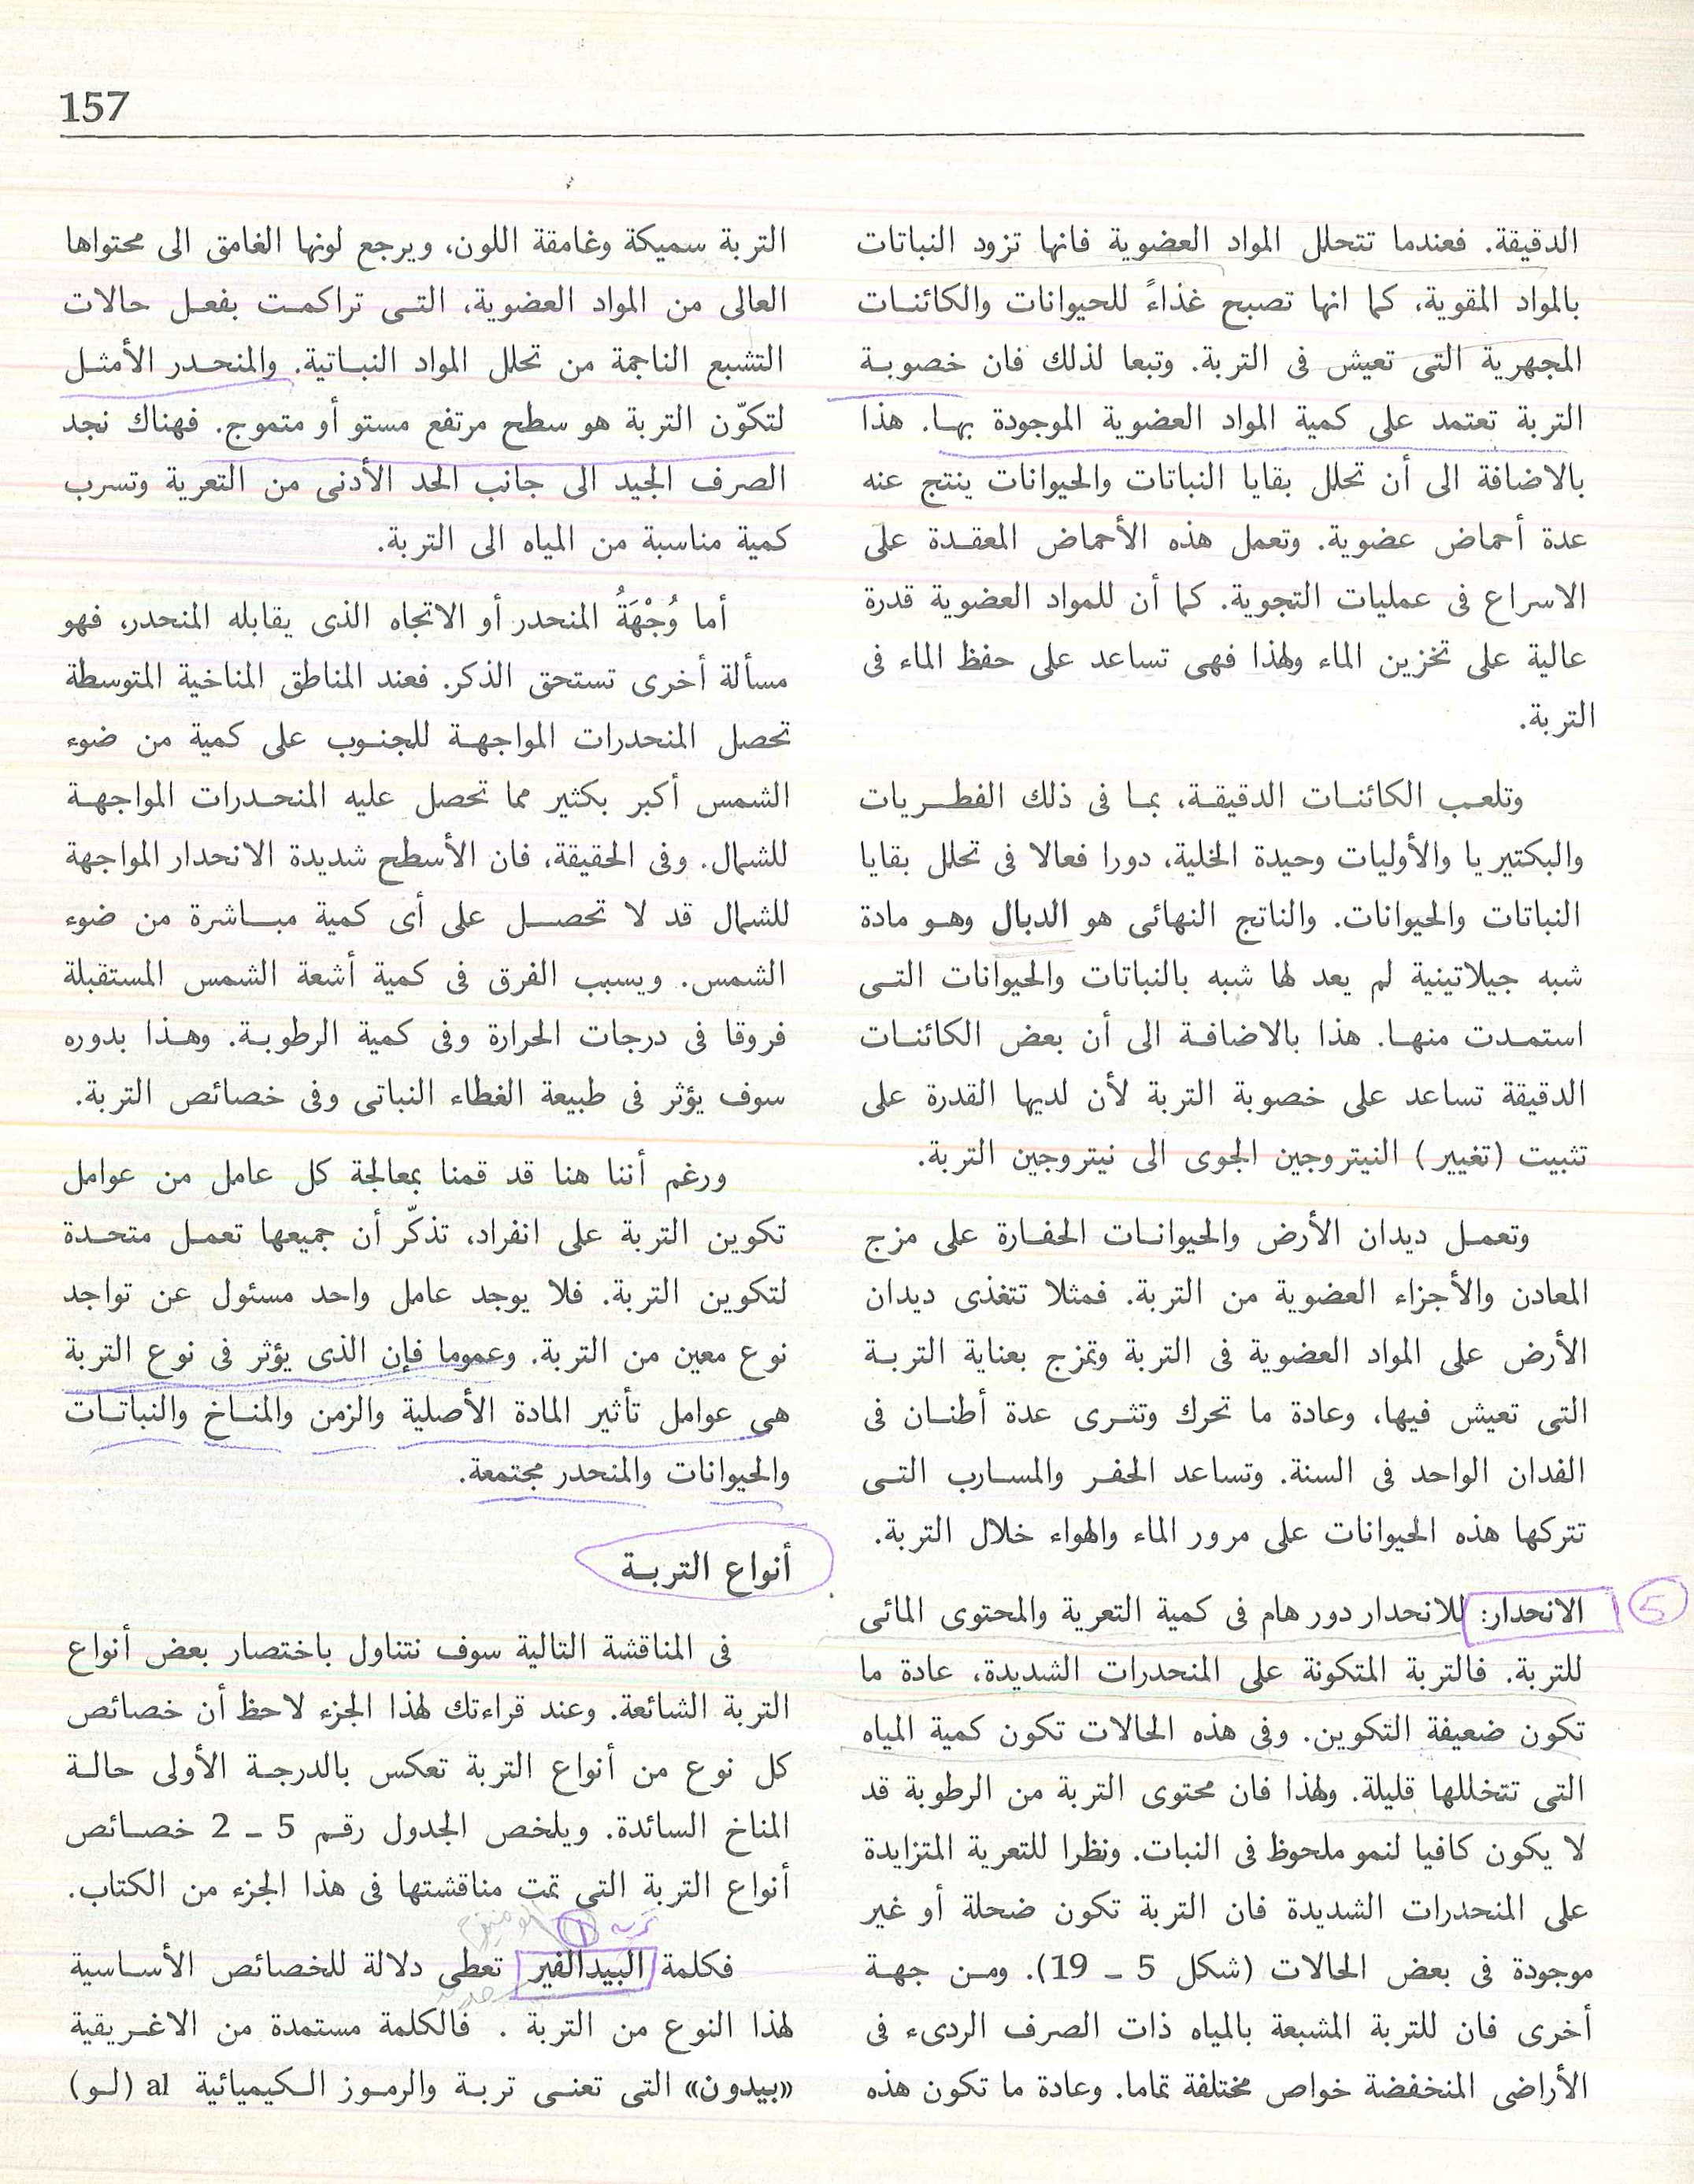 157
الدقيقة. فعندما تتحلل المواد العضوية فانها تزود النباتات
بالمواد المقوية، كما انها تصبح غذاءً للحيوانات والكائنات
المجهرية التى تعيش فى التربة. وتبعا لذلك فان خصوبة
التربة تعتمد على كمية المواد العضوية الموجودة بها. هذا
بالاضافة الى أن تحلل بقايا النباتات والحيوانات ينتج عنه
عدة أحماض عضوية. وتعمل هذه الأحماض المعقدة على
الاسراع فى عمليات التجوية. كما أن للمواد العضوية قدرة
عالية على تخزين الماء ولهذا فهى تساعد على حفظ الماء فى
التربة.
وتلعب الكائنات الدقيقة، بما فى ذلك الفطريات
والبكتيريا والأوليات وحيدة الخلية، دورا فعالا فى تحلل بقايا
النباتات والحيوانات. والناتج النهائى هو الدبال وهو مادة
شبه جيلاتينية لم يعد لها شبه بالنباتات والحيوانات التى
استمدت منها. هذا بالاضافة الى أن بعض الكائنات
الدقيقة تساعد على خصوبة التربة لأن لديها القدرة على
تثبيت (تغيير) النيتروجين الجوى الى نيتروجين التربة.
وتعمل ديدان الأرض والحيوانات الحفارة على مزج
المعادن والأجزاء العضوية من التربة. فمثلا تتغذى ديدان
الأرض على المواد العضوية فى التربة وتمزج بعناية التربة
التى تعيش فيها، وعادة ما تحرك وتثرى عدة أطنان فى
الفدان الواحد فى السنة. وتساعد الحفر والمسارب التى
تتركها هذه الحيوانات على مرور الماء والهواء خلال التربة.
5 الانحدار: للانحدار دور هام فى كمية التعرية والمحتوى المائى
للتربة. فالتربة المتكونة على المنحدرات الشديدة، عادة ما
تكون ضعيفة التكوين. وفى هذه الحالات تكون كمية المياه
التى تتخللها قليلة. ولهذا فان محتوى التربة من الرطوبة قد
لا يكون كافيا لنمو ملحوظ فى النبات. ونظرا للتعرية المتزايدة
على المنحدرات الشديدة فان التربة تكون ضحلة أو غير
موجودة فى بعض الحالات (شكل 5 - 19). ومن جهة
أخرى فان للتربة المشبعة بالمياه ذات الصرف الردىء فى
الأراضى المنخفضة خواص مختلفة تماما. وعادة ما تكون هذه
التربة سميكة وغامقة اللون، ويرجع لونها الغامق الى محتواها
العالى من المواد العضوية، التى تراكمت بفعل حالات
التشبع الناجمة من تحلل المواد النباتية. والمنحدر الأمثل
لتكوّن التربة هو سطح مرتفع مستو أو متموج. فهناك نجد
الصرف الجيد الى جانب الحد الأدنى من التعرية وتسرب
كمية مناسبة من المياه الى التربة.
أما وُجْهَةُ المنحدر أو الاتجاه الذى يقابله المنحدر، فهو
مسألة أخرى تستحق الذكر. فعند المناطق المناخية المتوسطة
تحصل المنحدرات المواجهة للجنوب على كمية من ضوء
الشمس أكبر بكثير مما تحصل عليه المنحدرات المواجهة
للشمال. وفى الحقيقة، فان الأسطح شديدة الانحدار المواجهة
للشمال قد لا تحصل على أى كمية مباشرة من ضوء
الشمس. ويسبب الفرق فى كمية أشعة الشمس المستقبلة
فروقا فى درجات الحرارة وفى كمية الرطوبة. وهذا بدوره
سوف يؤثر فى طبيعة الغطاء النباتى وفى خصائص التربة.
ورغم أننا هنا قد قمنا بمعالجة كل عامل من عوامل
تكوين التربة على انفراد، تذكّر أن جميعها تعمل متحدة
لتكوين التربة. فلا يوجد عامل واحد مسئول عن تواجد
نوع معين من التربة. وعموما فإن الذى يؤثر فى نوع التربة
هى عوامل تأثير المادة الأصلية والزمن والمناخ والنباتات
والحيوانات والمنحدر مجتمعة.
أنواع التربة
فى المناقشة التالية سوف نتناول باختصار بعض أنواع
التربة الشائعة. وعند قراءتك لهذا الجزء لاحظ أن خصائص
كل نوع من أنواع التربة تعكس بالدرجة الأولى حالة
المناخ السائدة. ويلخص الجدول رقم 5 - 2 خصائص
أنواع التربة التى تمت مناقشتها فى هذا الجزء من الكتاب.
تربة 1
فكلمة البيدالفير تعطى دلالة للخصائص الأساسية
لهذا النوع من التربة . فالكلمة مستمدة من الاغريقية
«بيدون» التى تعنى تربة والرموز الكيميائية al (لو)